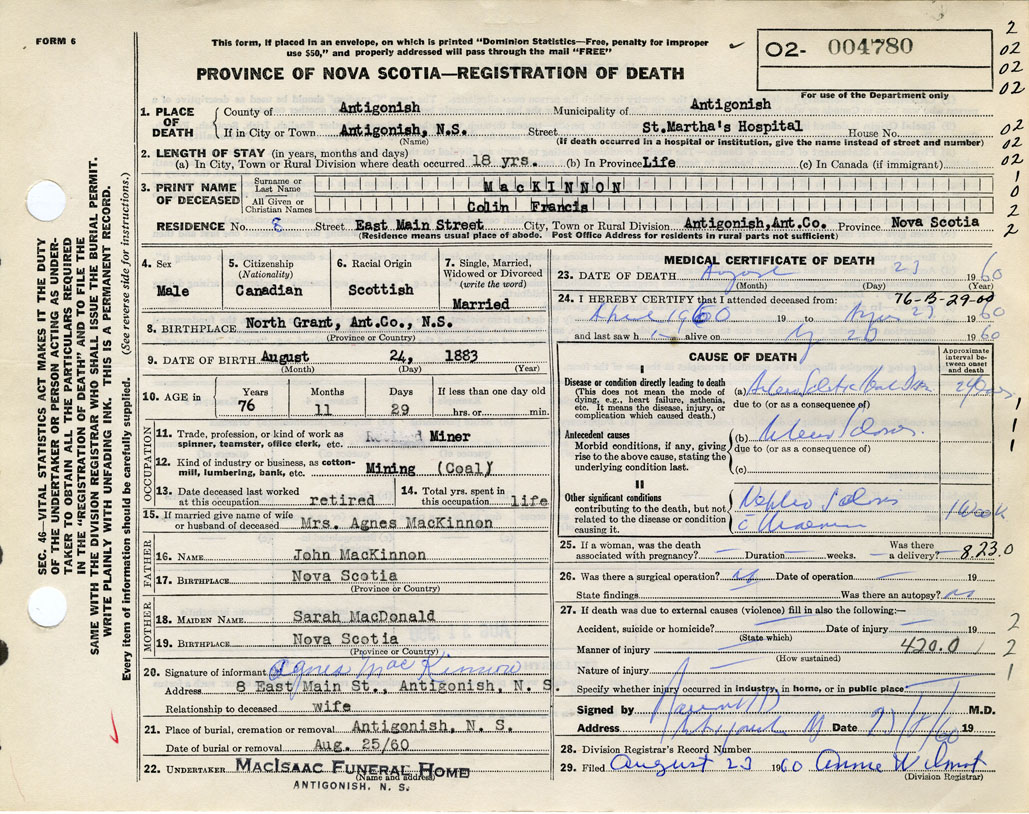 FORM 6
This form, if placed in an envelope, on which is printed "Dominion Statistics—Free, penalty for improper
use $50," and properly addressed will pass through the mail "FREE"
PROVINCE OF NOVA SCOTIA—REGISTRATION OF DEATH
02- 004780
For use of the Department only
2
02
02
02
02
02
02
1
0
2
2
SEC. 46—VITAL STATISTICS ACT MAKES IT THE DUTY
OF THE UNDERTAKER OR PERSON ACTING AS UNDER-
TAKER TO OBTAIN ALL THE PARTICULARS REQUIRED
IN THE "REGISTRATION OF DEATH" AND TO FILE THE
SAME WITH THE DIVISION REGISTRAR WHO SHALL ISSUE THE BURIAL PERMIT.
WRITE PLAINLY WITH UNFADING INK. THIS IS A PERMANENT RECORD.
Every item of information should be carefully supplied. (See reverse side for instructions.)
1. PLACE OF DEATH
County of Antigonish Municipality of Antigonish
If in City or Town Antigonish, N.S. Street St.Martha's Hospital House No.
(Name) (If death occurred in a hospital or institution, give the name instead of street and number)
2. LENGTH OF STAY (in years, months and days)
(a) In City, Town or Rural Division where death occurred 18 yrs. (b) In Province Life (c) In Canada (if immigrant)
3. PRINT NAME OF DECEASED
Surname or Last Name MacKINNON
All Given or Christian Names Colin Francis
RESIDENCE No. 8 Street East Main Street City, Town or Rural Division Antigonish,Ant.Co. Province Nova Scotia
(Residence means usual place of abode. Post Office Address for residents in rural parts not sufficient)
4. Sex
Male
5. Citizenship
(Nationality)
Canadian
6. Racial Origin
Scottish
7. Single, Married,
Widowed or Divorced
(write the word)
Married
8. BIRTHPLACE North Grant, Ant.Co., N.S.
(Province or Country)
9. DATE OF BIRTH August 24, 1883
(Month) (Day) (Year)
10. AGE in
Years Months Days If less than one day old
76 11 29 hrs. or min.
OCCUPATION
11. Trade, profession, or kind of work as
spinner, teamster, office clerk, etc. Miner
12. Kind of industry or business, as cotton-
mill, lumbering, bank, etc. Mining (Coal)
13. Date deceased last worked
at this occupation retired
14. Total yrs. spent in
this occupation life
15. If married give name of wife
or husband of deceased Mrs. Agnes MacKinnon
FATHER
16. NAME John MacKinnon
17. BIRTHPLACE Nova Scotia
(Province or Country)
MOTHER
18. MAIDEN NAME Sarah MacDonald
19. BIRTHPLACE Nova Scotia
(Province or Country)
20. Signature of informant Agnes MacKinnon
Address 8 East Main St., Antigonish, N. S.
Relationship to deceased wife
21. Place of burial, cremation or removal Antigonish, N. S.
Date of burial or removal Aug. 25/60
22. UNDERTAKER MACISAAC FUNERAL HOME
(Name and address)
ANTIGONISH, N. S.
MEDICAL CERTIFICATE OF DEATH
23. DATE OF DEATH August 23 1960
(Month) (Day) (Year)
24. I HEREBY CERTIFY that I attended deceased from: 76-B-29-00
April 1960 19 to 23 1960
and last saw h alive on 20 1960
CAUSE OF DEATH
Approximate
interval be-
tween onset
and death
I
Disease or condition directly leading to death
(This does not mean the mode of
dying, e.g., heart failure, asthenia,
etc. It means the disease, injury, or
complication which caused death.)
(a)
due to (or as a consequence of)
Antecedent causes
Morbid conditions, if any, giving
rise to the above cause, stating the
underlying condition last.
(b)
due to (or as a consequence of)
(c)
II
Other significant conditions
contributing to the death, but not
related to the disease or condition
causing it.
1 Week
1
1
1
25. If a woman, was the death
associated with pregnancy? — Duration — weeks. — Was there
a delivery? 823.0
26. Was there a surgical operation? Date of operation — 19
State findings Was there an autopsy? no
27. If death was due to external causes (violence) fill in also the following:—
Accident, suicide or homicide? — Date of injury — 19
(State which)
Manner of injury 420.0
(How sustained)
Nature of injury —
2
1 2
1
Specify whether injury occurred in industry, in home, or in public place.
Signed by M.D.
Address Antigonish Date 23/8/60 19
28. Division Registrar's Record Number
29. Filed August 23 1960 Annie Wilmot
(Division Registrar)